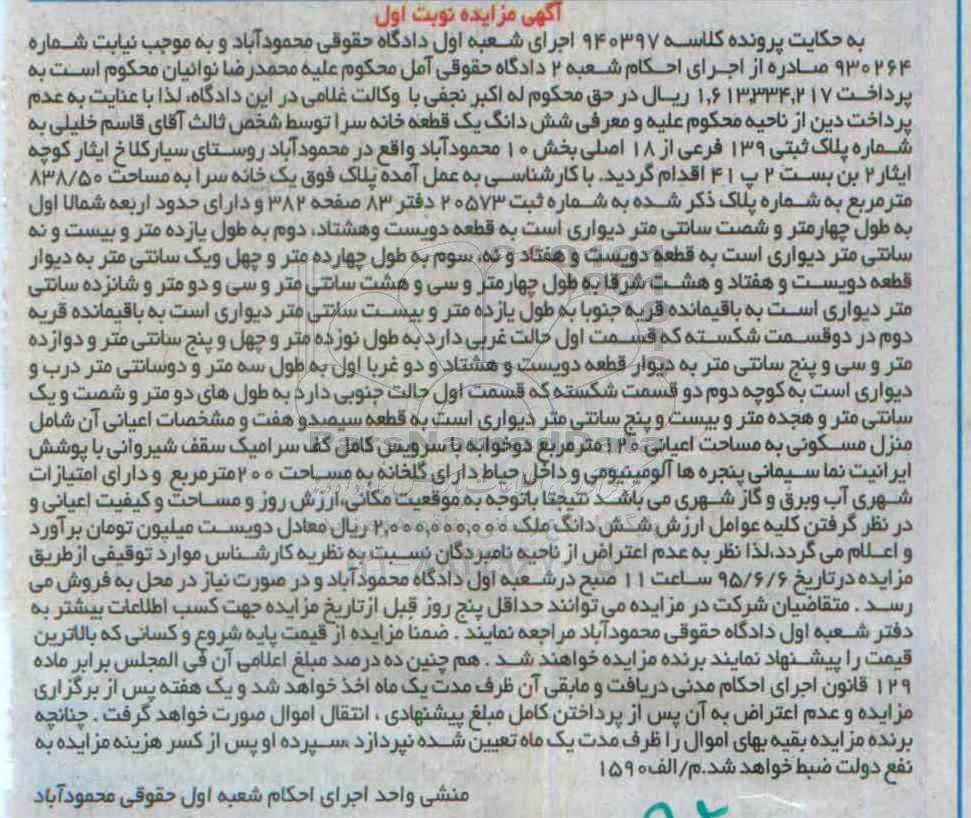 آگهی مزایده نوبت اول
به حکایت پرونده کلاسه ۹۴۰۳۹۷ اجرای شعبه اول دادگاه حقوقی محمودآباد و به موجب نیابت شماره
۹۳۰۲۶۴ صادره از اجرای احکام شعبه ۲ دادگاه حقوقی آمل محکوم علیه محمدرضا نوائیان محکوم است به
پرداخت ۱,۶۱۳,۳۳۴,۲۱۷ ریال در حق محکوم له اکبر نجفی با وکالت غلامی در این دادگاه، لذا با عنایت به عدم
پرداخت دین از ناحیه محکوم علیه و معرفی شش دانگ یک قطعه خانه سرا توسط شخص ثالث آقای قاسم خلیلی به
شماره پلاک ثبتی ۱۳۹ فرعی از ۱۸ اصلی بخش ۱۰ محمودآباد واقع در محمودآباد روستای سیارکلاخ ایثار کوچه
ایثار۲ بن بست ۲ پ ۴۱ اقدام گردید. با کارشناسی به عمل آمده پلاک فوق یک خانه سرا به مساحت ۸۳۸/۵۰
مترمربع به شماره پلاک ذکر شده به شماره ثبت ۲۰۵۷۳ دفتر ۸۳ صفحه ۳۸۲ و دارای حدود اربعه شمالا اول
به طول چهارمتر و شصت سانتی متر دیواری است به قطعه دویست وهشتاد، دوم به طول یازده متر و بیست و نه
سانتی متر دیواری است به قطعه دویست و هفتاد و نه، سوم به طول چهارده متر و چهل ویک سانتی متر به دیوار
قطعه دویست و هفتاد و هشت شرقا به طول چهارمتر و سی و هشت سانتی متر و سی و دو متر و شانزده سانتی
متر دیواری است به باقیمانده قریه جنوبا به طول یازده متر و بیست سانتی متر دیواری است به باقیمانده قریه
دوم در دوقسمت شکسته که قسمت اول حالت غربی دارد به طول نوزده متر و چهل و پنج سانتی متر و دوازده
متر و سی و پنج سانتی متر به دیوار قطعه دویست و هشتاد و دو غربا اول به طول سه متر و دوسانتی متر درب و
دیواری است به کوچه دوم دو قسمت شکسته که قسمت اول حالت جنوبی دارد به طول های دو متر و شصت و یک
سانتی متر و هجده متر و بیست و پنج سانتی متر دیواری است به قطعه سیصدو هفت و مشخصات اعیانی آن شامل
منزل مسکونی به مساحت اعیانی ۱۲۰مترمربع دوخوابه با سرویس کامل کف سرامیک سقف شیروانی با پوشش
ایرانیت نما سیمانی پنجره ها آلومینیومی و داخل حیاط دارای گلخانه به مساحت ۲۰۰مترمربع و دارای امتیازات
شهری آب وبرق و گاز شهری می باشد نتیجتا باتوجه به موقعیت مکانی،ارزش روز و مساحت و کیفیت اعیانی و
در نظر گرفتن کلیه عوامل ارزش شش دانگ ملک ۲,۰۰۰,۰۰۰,۰۰۰ ریال معادل دویست میلیون تومان برآورد
و اعلام می گردد،لذا نظر به عدم اعتراض از ناحیه نامبردگان نسبت به نظریه کارشناس موارد توقیفی ازطریق
مزایده درتاریخ ۹۵/۶/۶ ساعت ۱۱ صبح درشعبه اول دادگاه محمودآباد و در صورت نیاز در محل به فروش می
رسد . متقاضیان شرکت در مزایده می توانند حداقل پنج روز قبل ازتاریخ مزایده جهت کسب اطلاعات بیشتر به
دفتر شعبه اول دادگاه حقوقی محمودآباد مراجعه نمایند . ضمنا مزایده از قیمت پایه شروع و کسانی که بالاترین
قیمت را پیشنهاد نمایند برنده مزایده خواهند شد . هم چنین ده درصد مبلغ اعلامی آن فی المجلس برابر ماده
۱۲۹ قانون اجرای احکام مدنی دریافت و مابقی آن ظرف مدت یک ماه اخذ خواهد شد و یک هفته پس از برگزاری
مزایده و عدم اعتراض به آن پس از پرداختن کامل مبلغ پیشنهادی ، انتقال اموال صورت خواهد گرفت . چنانچه
برنده مزایده بقیه بهای اموال را ظرف مدت یک ماه تعیین شده نپردازد ،سپرده او پس از کسر هزینه مزایده به
نفع دولت ضبط خواهد شد.م/الف۱۵۹۰
منشی واحد اجرای احکام شعبه اول حقوقی محمودآباد